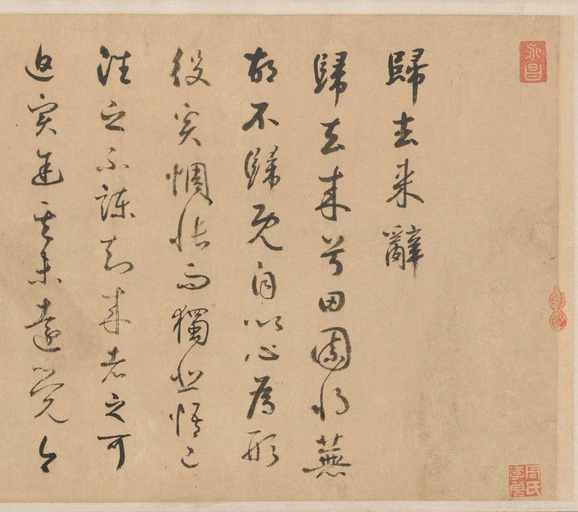 永昌
歸去来辭
歸去来兮田園将蕪
胡不歸既自以心為形
役奚惆悵而獨悲悟已
往之不諫知来者之可
追實迷其未遠覺今